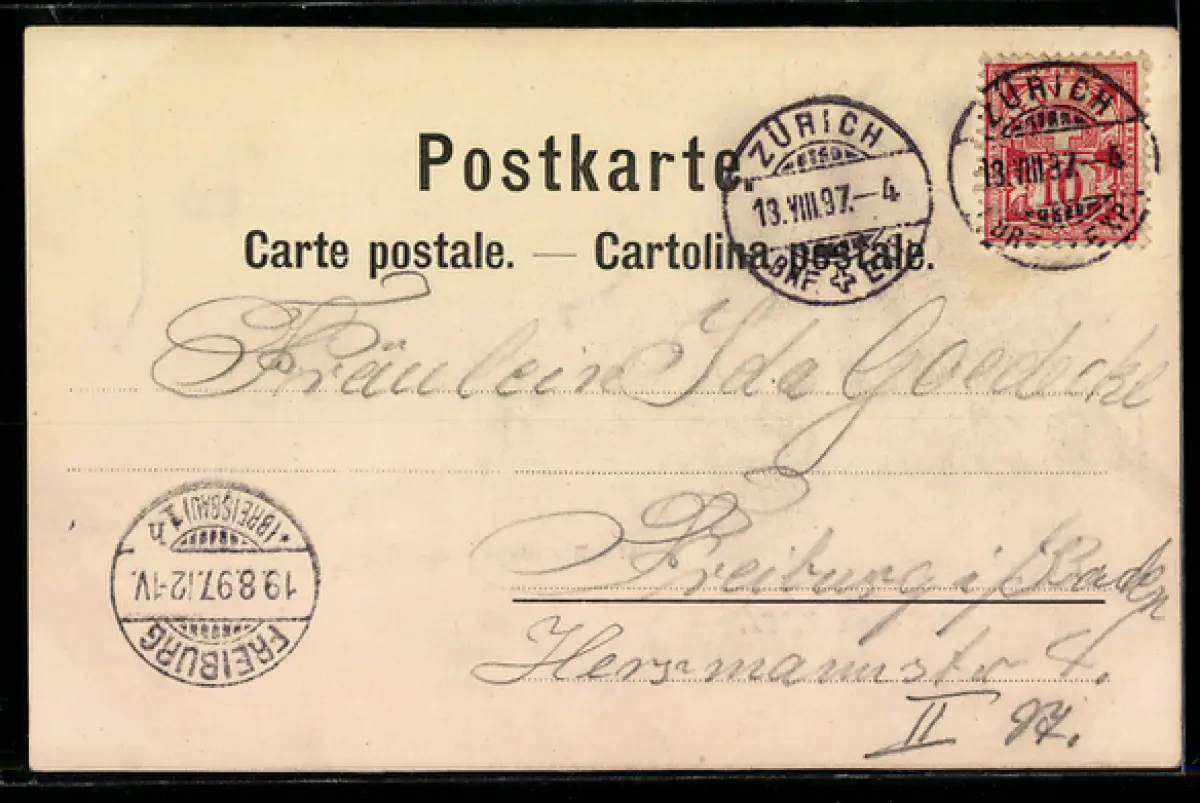 Postkarte.
Carte postale. — Cartolina postale.
ZÜRICH
13.VIII.97.–4
BHF.
ZÜRICH
13.VIII.97.–4
10
Fräulein Ida Goedecke
Freiburg i/Baden
Hermannstr 4.
II
FREIBURG
19.8.97.12-1V.
*(BREISGAU)1h